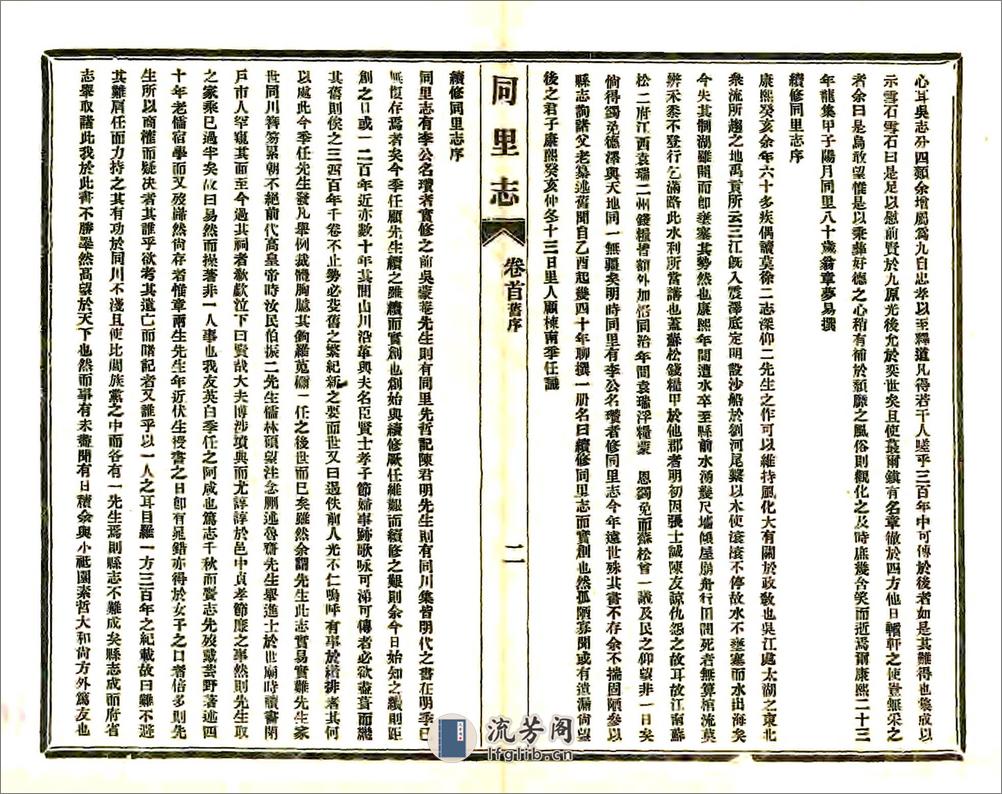 心耳吳志分四類余增廣為九自忠孝以至釋道凡得若干人嗟乎三百年中可傳於後者如是其難得也集成以
示雪石雪石曰是足以慰前賢於九原光後允於奕世矣且使蕞爾鎮有名章徹於四方他日輶軒之使豈無采之
者余曰是烏敢望惟是以乘彝好德之心稍有補於頹靡之風俗則觀化之及時庶幾含笑而近焉爾康熙二十三
年龍集甲子陽月同里八十歲翁章夢易撰
續修同里志序
康熙癸亥余年六十多疾偶讀莫徐二志深仰二先生之作可以維持風化大有關於政教也吳江處太湖之東北
衆流所趨之地禹貢所云三江旣入震澤底定明設沙船於劉河尾繫以木使滾滾不停故水不壅塞而水出海矣
今失其制湖雖開而卽壅塞其勢然也康熙年間遭水卒至縣前水湧幾尺墻傾屋崩舟行田間死者無算宿流莫
辨禾黍不登行乞滿路此水利所當講也蓋蘇松錢糧甲於他郡者明初因張士誠陳友諒仇怨之故耳故江南蘇
松二府江西袁瑞二州錢糧皆額外加倍同治年間袁瑞浮糧蒙 恩蠲免而蘇松曾一議及民之仰望非一日矣
倘得蠲免德澤與天地同一無疆矣明時同里有李公名瓚者修同里志今年遠世殊其書不存余不揣固陋參以
縣志詢諸父老纂述舊聞自乙酉起幾四十年聊撰一册名曰續修同里志而實創也然孤陋寡聞或有遺漏尚望
後之君子康熙癸亥仲冬十三日里人顧棟南季任識
同里志
卷首 舊序
二
續修同里志序
同里志有李公名瓚者實修之前吳蒙菴先生則有同里先哲記陳君明先生則有同川集皆明代之書在明季已
無復存焉者矣今季任顧先生續之雖續而實創也創始與續修厥任維艱而續修之艱則余今日始知之續則距
創之日或一二百年近亦數十年其間山川沿革與夫名臣賢士孝子節婦事跡歌咏可涕可傳者必欲盡蒐而繼
其舊則俟之三四百年千卷不止勢必芟舊之繁紀新之要而世又曰過佚前人光不仁嗚呼有事於續排者其何
以處此今季任先生發凡舉例裁體胸臆其鉤羅蒐彌一任之後世而已矣雖然余謂先生此志實易實難先生家
世同川簪笏累朝不絕前代高皇帝時汝民伯振二先生儒林碩望注念刪述魯齋先生舉進士於世廟時讀書閉
戶市人罕窺其面至今過其祠者歔欷泣下曰賢哉大夫博涉墳典而尤諄諄於邑中貞孝節廉之事然則先生取
之家乘已過半矣故曰易然而操著非一人事也我友英白季任之阿咸也篤志千秋而賫志先歿戴耘野著述四
十年老儒宿學而又歿巋然尚存者惟章兩生先生年近伏生授書之日卽有晁錯亦得於女子之口者倍多則先
生所以商榷而疑決者其誰乎欲考其遺亡而睹記者又誰乎以一人之耳目羅一方三百年之紀載故曰難不避
其難肩任而力持之其有功於同川不淺且使比閭族黨之中而各有一先生焉則縣志不難成矣縣志成而府省
志舉取諸此我於此書不勝睪然高望於天下也然而事有未盡聞有日積余與小祗園素哲大和尚方外篤友也
流芳阁
lfglib.cn